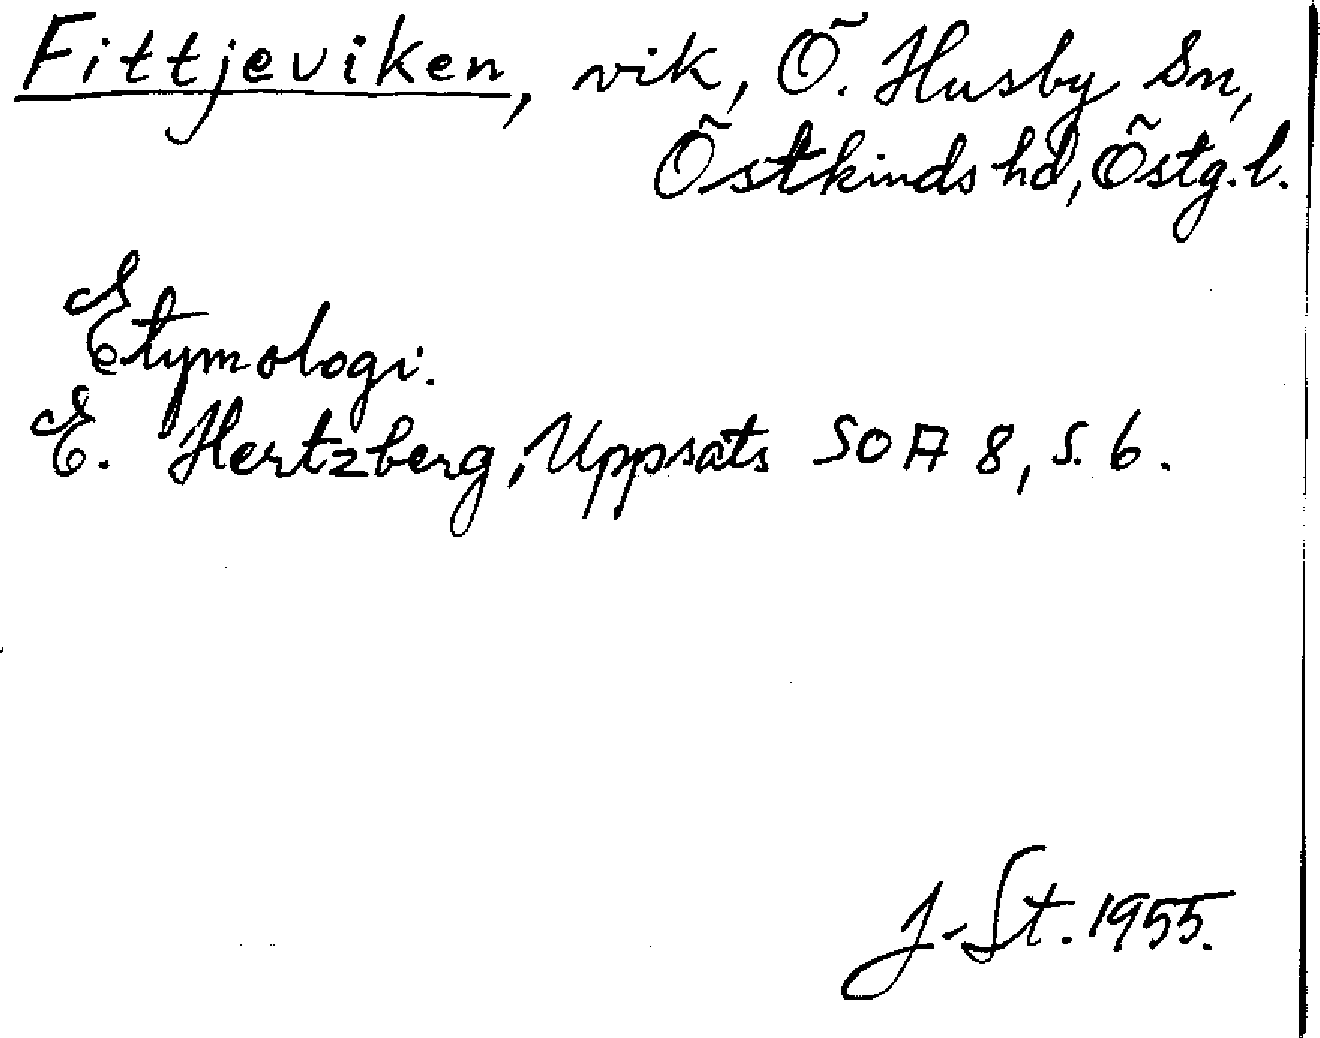 Fittjeviken, vik, Ö. Husby sn,
Östkinds hd, Östg. l.
Etymologi.
E. Hertzberg, Uppsats SOA 8, s. 6.
J-St. 1955.